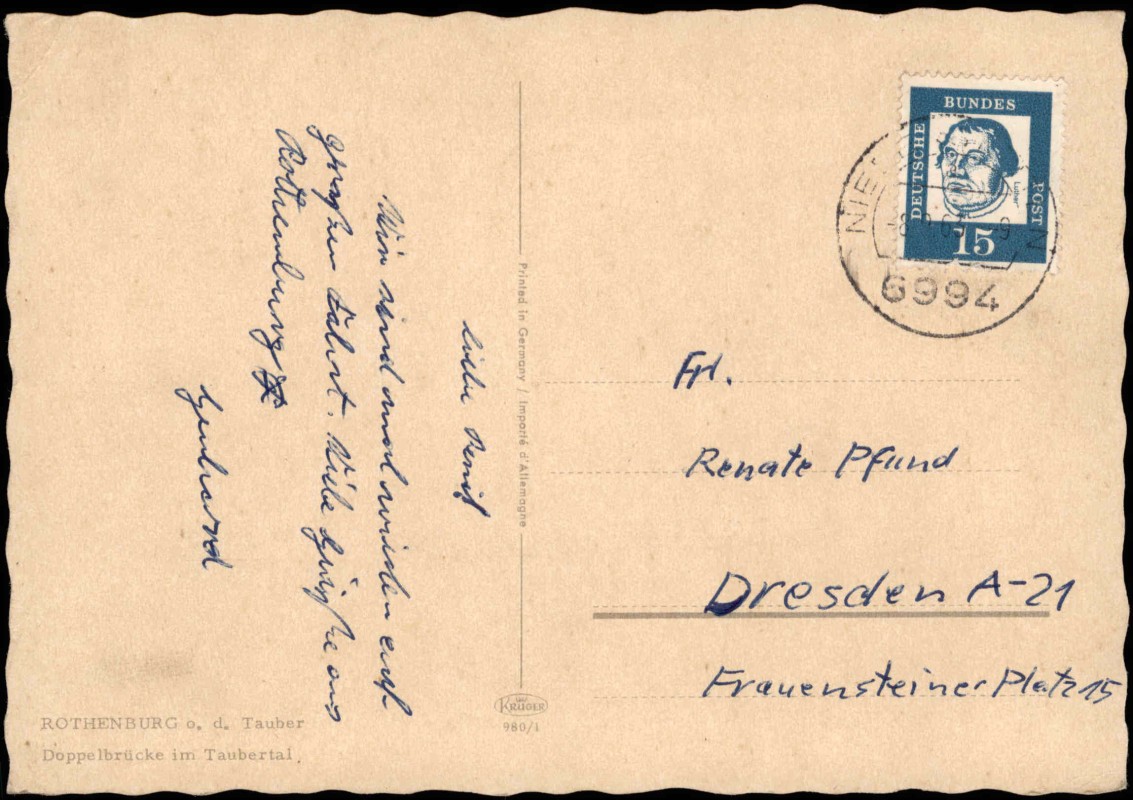 Liebe Renate
Wir sind mal wieder auf
großer Fahrt. Viele Grüße aus
Rothenburg
Printed in Germany / Importé d'Allemagne
KRÜGER
980/1
ROTHENBURG o. d. Tauber
Doppelbrücke im Taubertal
DEUTSCHE
BUNDES
POST
Luther
15
6994
Frl.
Renate Pfund
Dresden A-21
Frauensteiner Platz 15